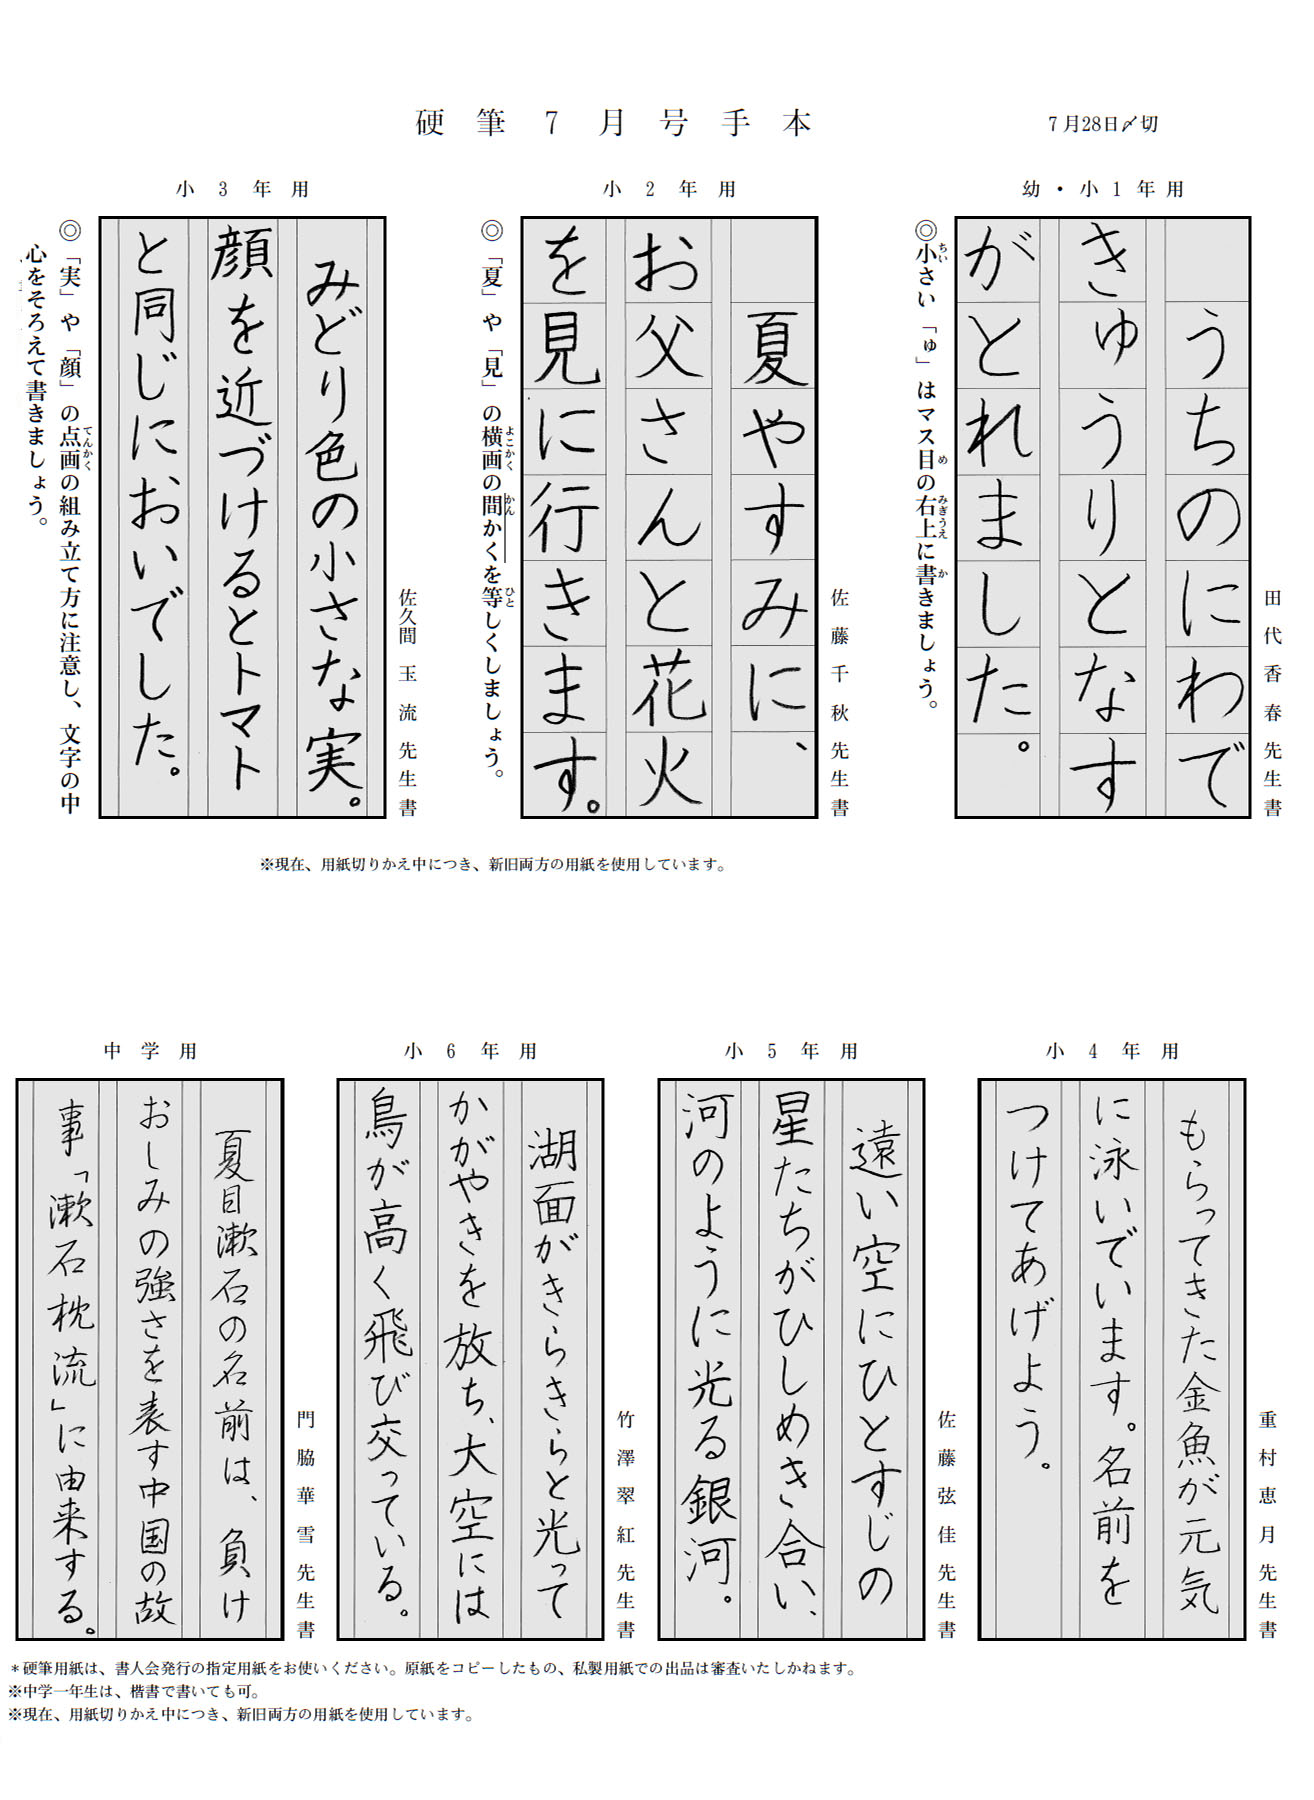 硬筆7月号手本
7月28日〆切
幼・小1年用
うちのにわで
きゅうりとなす
がとれました。
田代香春先生書
◎小さい「ゅ」はマス目の右上に書きましょう。
小2年用
夏やすみに、
お父さんと花火
を見に行きます。
佐藤千秋先生書
◎「夏」や「見」の横画の間かくを等しくしましょう。
小3年用
みどり色の小さな実。
顔を近づけるとトマト
と同じにおいでした。
佐久間玉流先生書
◎「実」や「顔」の点画の組み立て方に注意し、文字の中
心をそろえて書きましょう。
※現在、用紙切りかえ中につき、新旧両方の用紙を使用しています。
小4年用
もらってきた金魚が元気
に泳いでいます。名前を
つけてあげよう。
重村恵月先生書
小5年用
遠い空にひとすじの
星たちがひしめき合い、
河のように光る銀河。
佐藤弦佳先生書
小6年用
湖面がきらきらと光って
かがやきを放ち、大空には
鳥が高く飛び交っている。
竹澤翠紅先生書
中学用
夏目漱石の名前は、負け
おしみの強さを表す中国の故
事「漱石枕流」に由来する。
門脇華雪先生書
＊硬筆用紙は、書人会発行の指定用紙をお使いください。原紙をコピーしたもの、私製用紙での出品は審査いたしかねます。
※中学一年生は、楷書で書いても可。
※現在、用紙切りかえ中につき、新旧両方の用紙を使用しています。